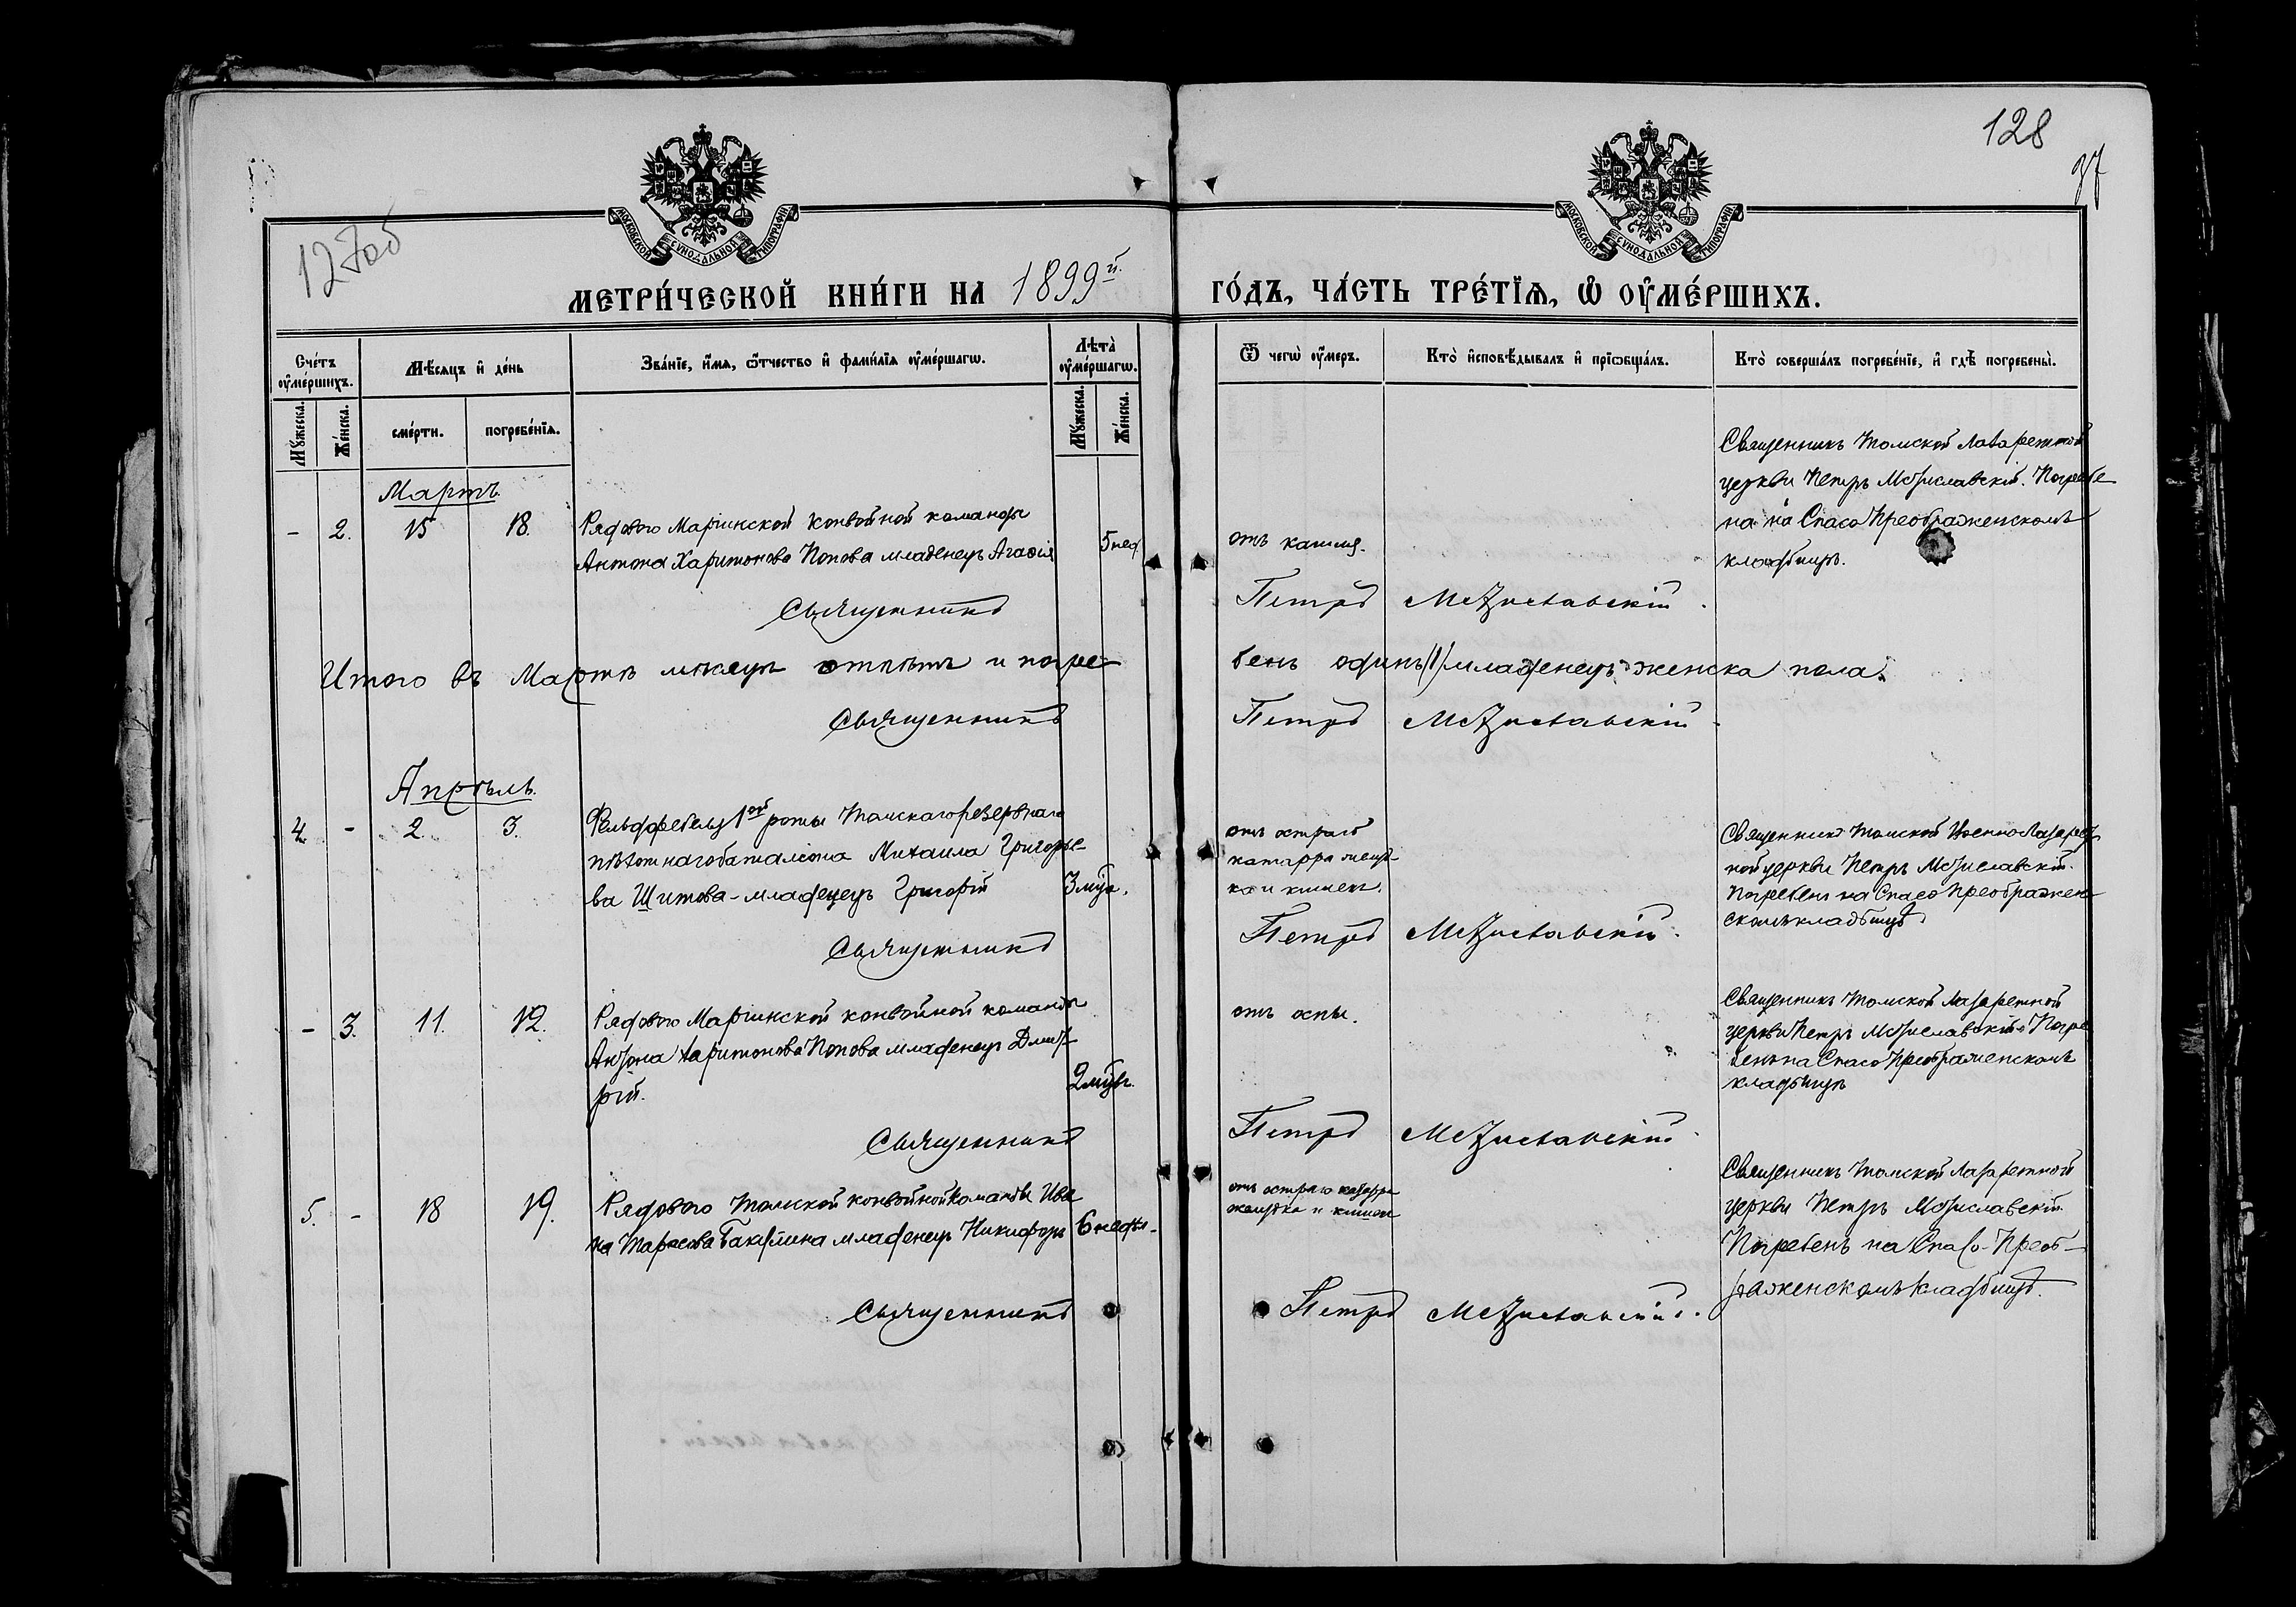 128
97
127об
МОСКОВСКОЙ СѴНОДАЛЬНОЙ ТИПОГРАФІИ
МОСКОВСКОЙ СѴНОДАЛЬНОЙ ТИПОГРАФІИ
МЕТРИ́ЧЕСКОЙ КНИ́ГИ НА 1899й.
ГО́ДЪ, ЧА́СТЬ ТРЕ́ТЇѦ, Ѡ҆ ОУ҆МЕ́РШИХЪ.
Сче́тъ оу҆ме́ршихъ.
Мѣ́сѧцъ и҆ де́нь
Зва́нїе, и҆́мѧ, ѻ҆́тчество и҆ фами́лїѧ оу҆ме́ршагѡ.
Лѣ́та оу҆ме́ршагѡ.
Ѿ чегѡ̀ оу҆́меръ.
Кто̀ и҆сповѣ́дывалъ и҆ прїѡбща́лъ.
Кто̀ соверша́лъ погребе́нїе, и҆ гдѣ̀ погребены̀.
Мꙋ́жеска.
Же́нска.
сме́рти.
погребе́нїѧ.
Мꙋ́жеска.
Же́нска.
Мартъ.
- 2. 15 18. Рядового Маріинской конвойной команды
Антона Харитонова Попова младенецъ Агафія
5 нед.
отъ кашля.
Священникъ Томской Лазаретной
церкви Петръ Мстиславскій. Погребе-
на на Спасо Преображенскомъ
кладбищѣ.
Священникъ Петръ Мстиславскій.
Итого въ Мартѣ мѣсяцѣ отпѣтъ и погре-
бенъ одинъ /1/ младенецъ женска пола.
Священникъ Петръ Мстиславскій.
Апрѣль.
4. - 2. 3. Фельдфебеля 1ой роты Томскаго резервнаго
пѣхотнаго баталіона Михаила Григорье-
ва Шитова - младенецъ Григорій
3 мѣс.
отъ остраго
катарра желуд-
ка и кишекъ.
Священникъ Томской Военно Лазарет-
ной церкви Петръ Мстиславскій.
Погребенъ на Спасо Преображен-
скомъ кладбищѣ
Священникъ Петръ Мстиславскій.
- 3. 11. 12. Рядового Маріинской конвойной команды
Антона Харитонова Попова младенецъ Дмит-
рій.
2 мѣс.
отъ оспы.
Священникъ Томской Лазаретной
церкви Петръ Мстиславскій. Погре-
бенъ на Спасо Преображенскомъ
кладбищѣ
Священникъ Петръ Мстиславскій.
5. - 18 19. Рядового Томской конвойной команды Ива-
на Тарасова младенецъ Никифоръ
6 недѣл.
отъ остраго катарра
желудка и кишекъ
Священникъ Томской Лазаретной
церкви Петръ Мстиславскій.
Погребенъ на Спасо-Преоб-
раженскомъ кладбищѣ.
Священникъ Петръ Мстиславскій.